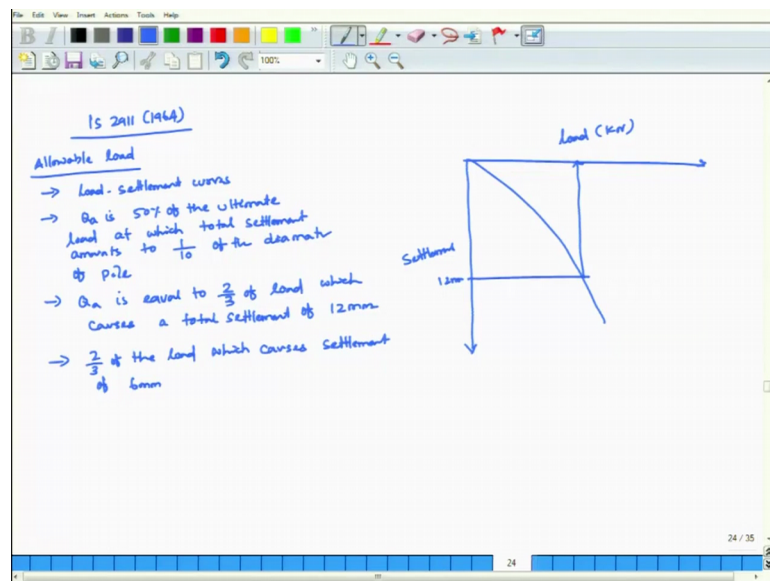 File Edit View Insert Actions Tools Help
B I
100%
IS 2911 (1964)
Allowable load
→ Load-settlement curves
→ Qa is 50% of the ultimate
load at which total settlement
amounts to 1/10 of the diameter
of pile
→ Qa is equal to 2/3 of load which
causes a total settlement of 12mm
→ 2/3 of the load which causes settlement
of 6mm
Load (KN)
Settlement
12mm
24 / 35
24